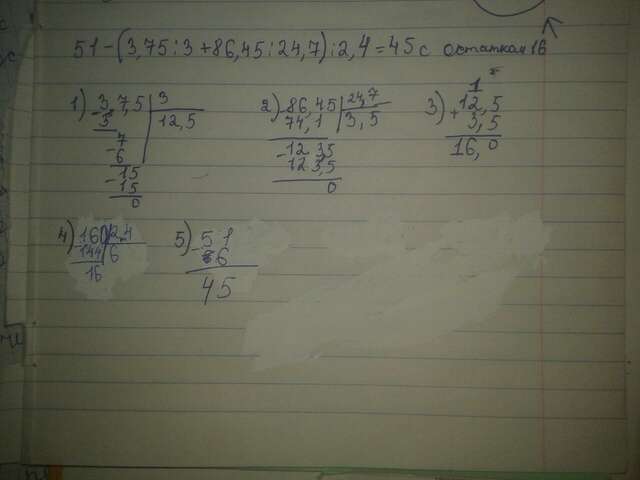 51-(3,75:3+86,45:24,7):2,4=45 с остатком 16
1) 3,7,5 | 3
- 3 | 12,5
7
- 6
15
- 15
0
2) 86,45 | 24,7
74,1 | 3,5
- 12 35
12 3,5
0
3) 1
+ 12,5
3,5
16,0
4) 160 | 2,4
144 | 6
16
5) - 51
6
45